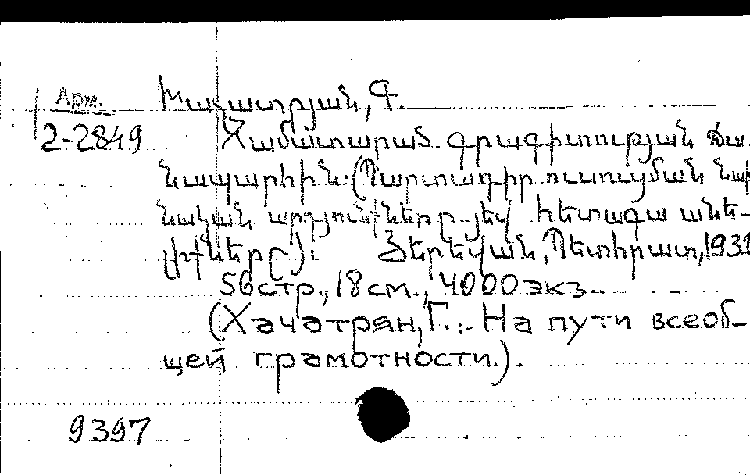 Арм. Խաչատրյան, Գ.
2-2849 Համատարած գրագիտության ճա-
նապարհին (Պարտադիր ուսուցման նախ-
նական արդյունքները յեվ հետագա անե-
լիքները): Յերեվան, Պետհրատ, 1931
56стр., 18см., 4000экз.
(Хачатрян, Г.: На пути всеоб-
щей грамотности.).
9397